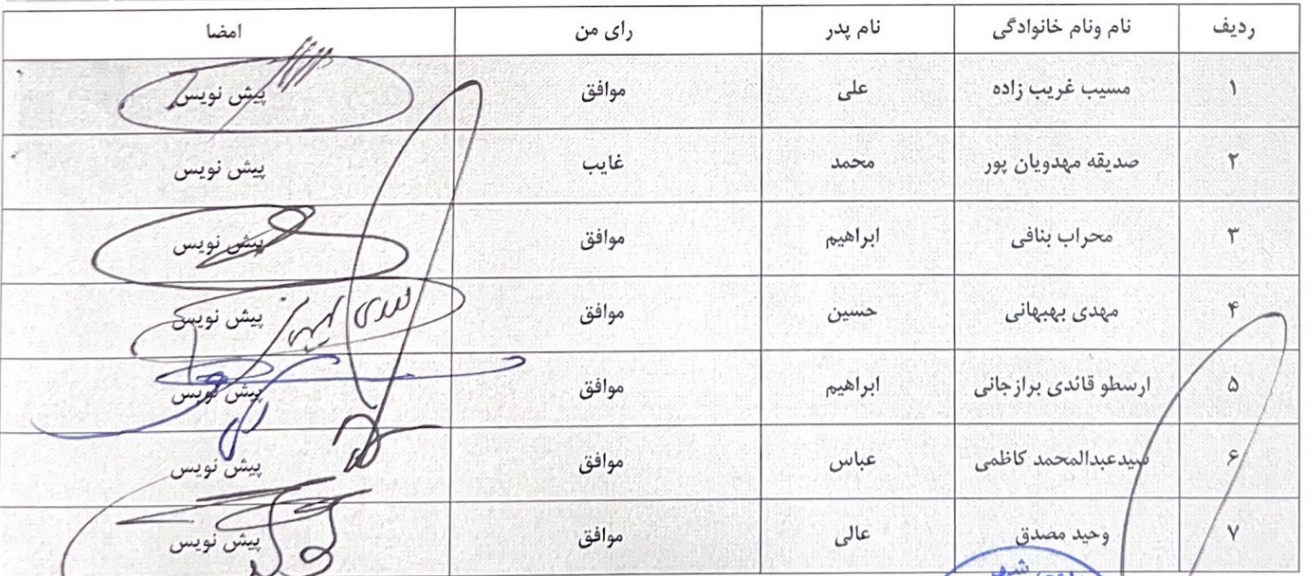 ردیف نام ونام خانوادگی نام پدر رای من امضا
۱ مسیب غریب زاده علی موافق پیش نویس
۲ صدیقه مهدویان پور محمد غایب پیش نویس
۳ محراب بنافی ابراهیم موافق پیش نویس
۴ مهدی بهبهانی حسین موافق پیش نویس
۵ ارسطو قائدی برازجانی ابراهیم موافق پیش نویس
۶ سیدعبدالمحمد کاظمی عباس موافق پیش نویس
۷ وحید مصدق عالی موافق پیش نویس
شهر